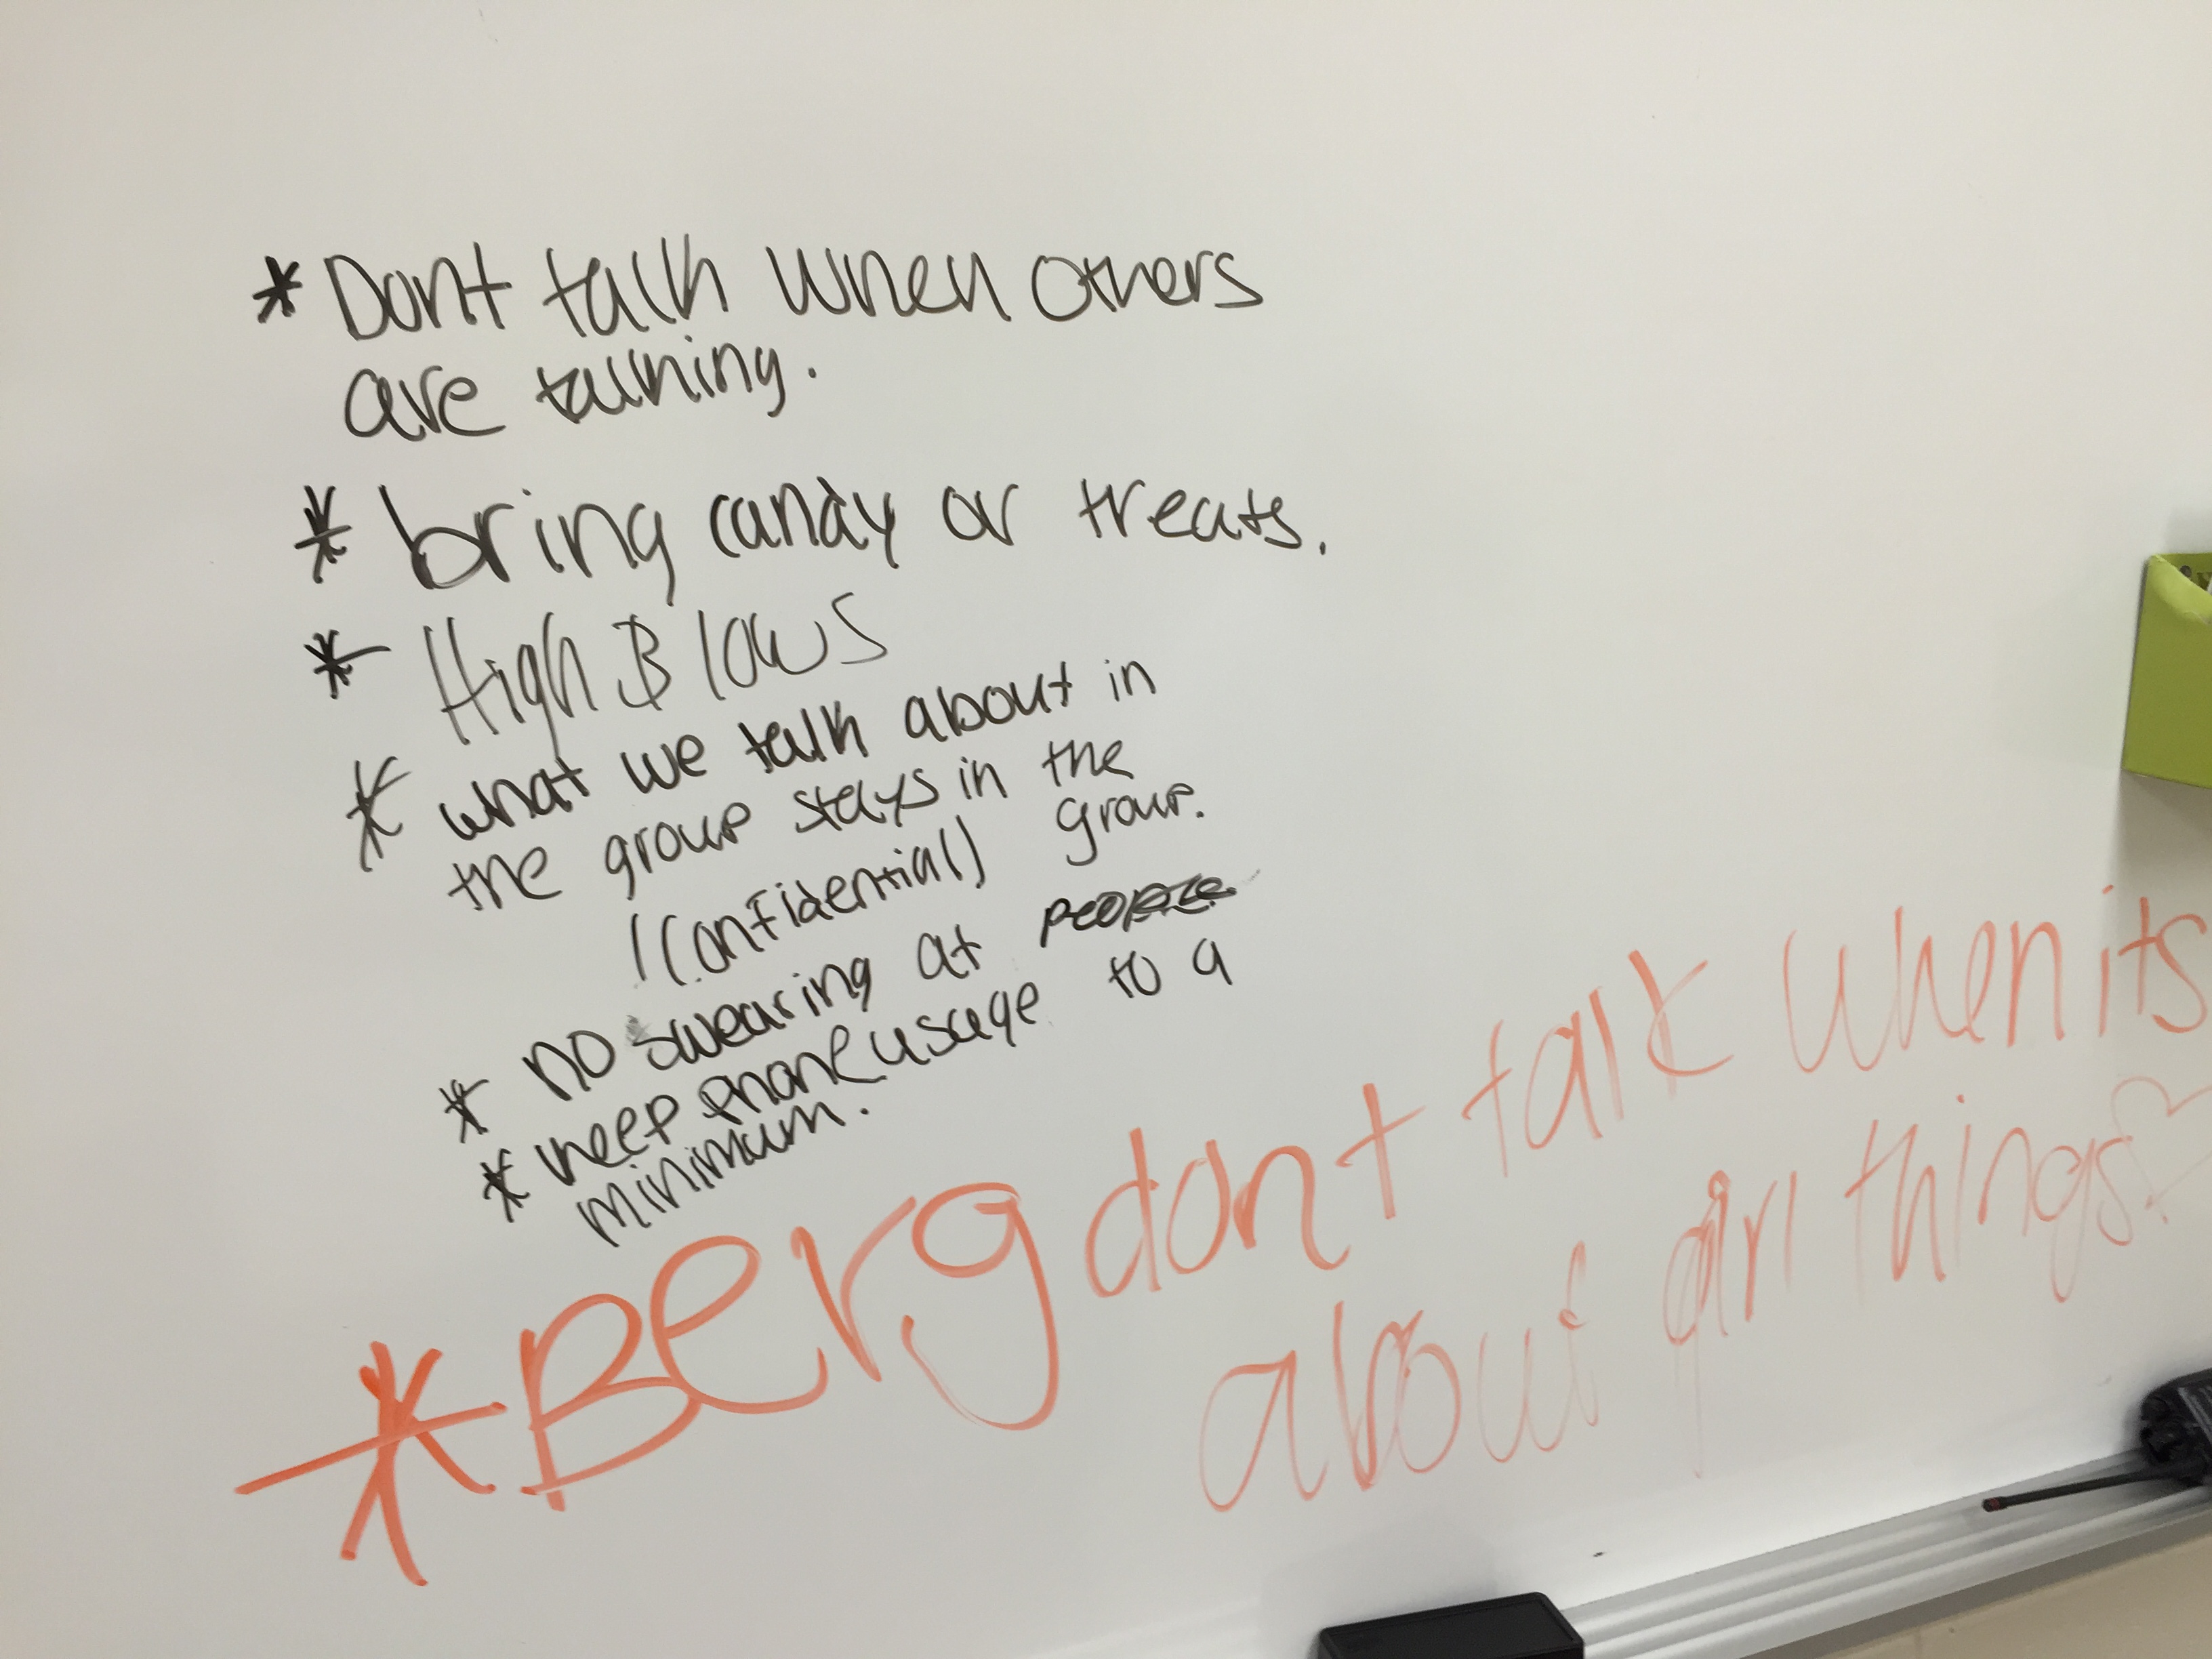 * Dont talk when others
are talking.
* bring candy or treats.
* High & lows
* what we talk about in
the group stays in the
group.
(Confidential)
* no swearing at people
* keep phone usage to a
minimum.
* Berg dont talk when its
about girl things.